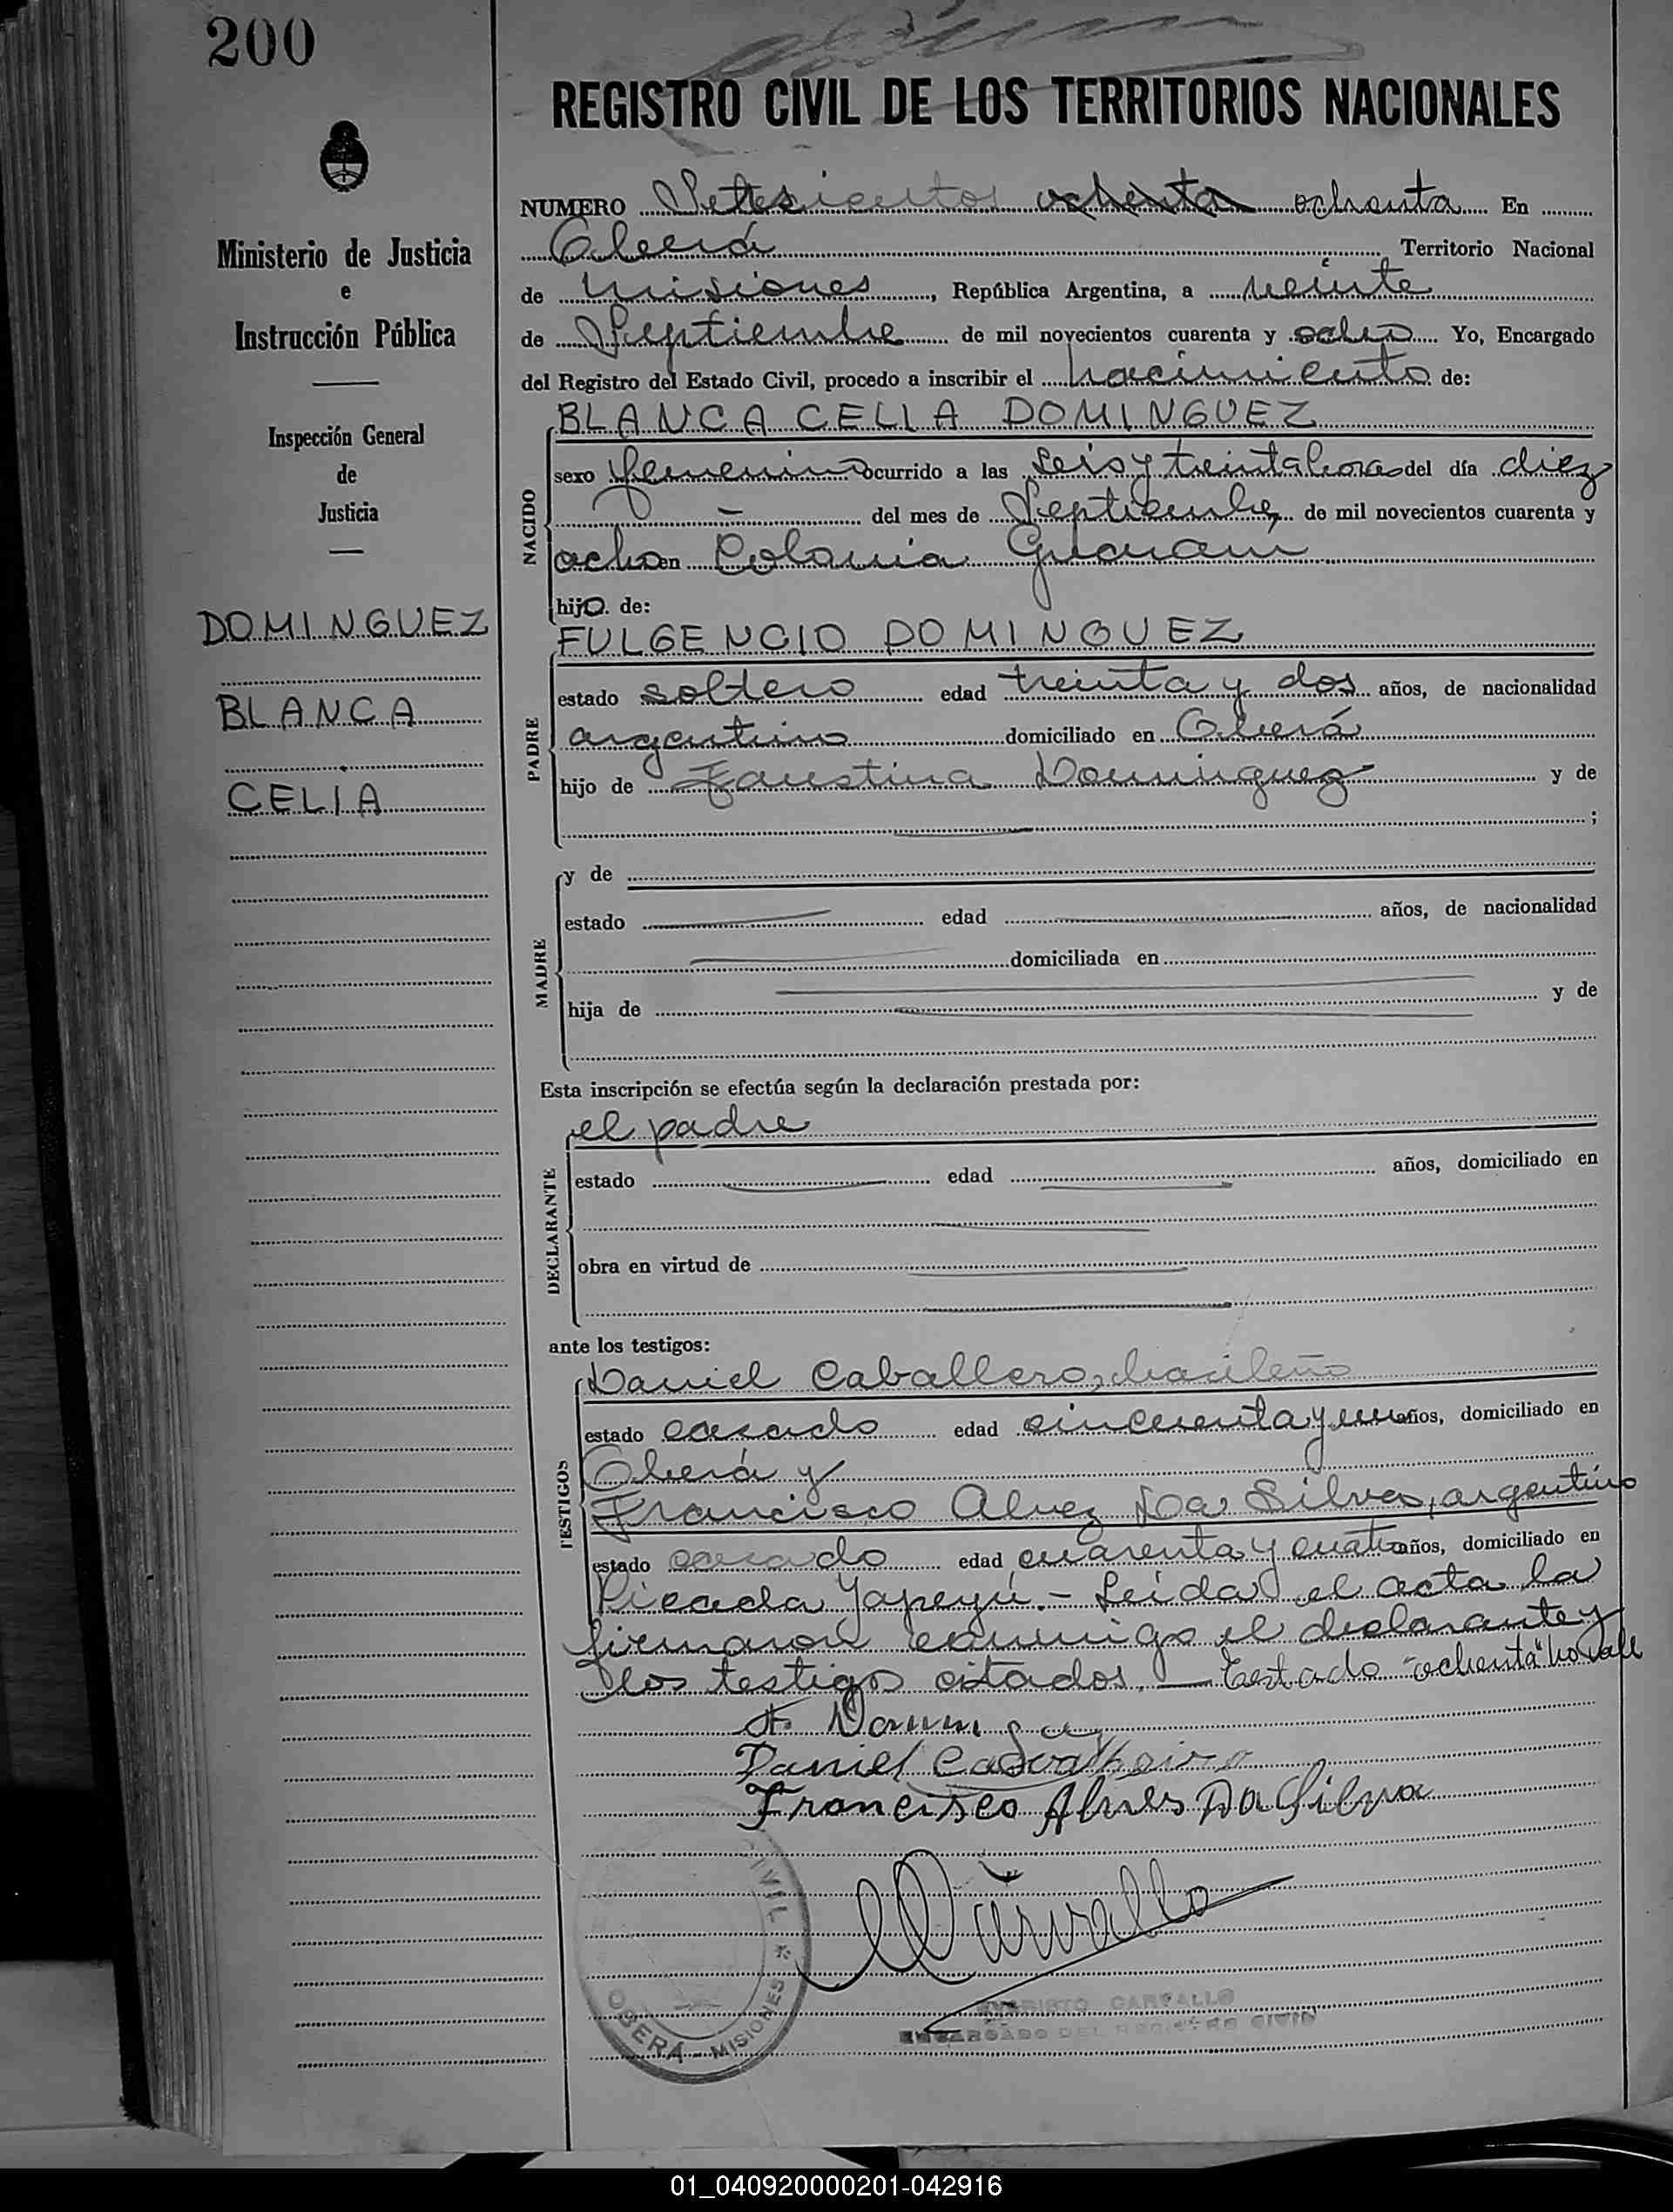 200
REGISTRO CIVIL DE LOS TERRITORIOS NACIONALES
Ministerio de Justicia
e
Instrucción Pública
Inspección General
de
Justicia
DOMINGUEZ
BLANCA
CELIA
NUMERO Setesientos ochenta ochenta En
Oberá Territorio Nacional
de Misiones, República Argentina, a veinte
de Septiembre de mil novecientos cuarenta y ocho Yo, Encargado
del Registro del Estado Civil, procedo a inscribir el nacimiento de:
NACIDO
BLANCA CELIA DOMINGUEZ
sexo femenino ocurrido a las seis y treinta horas del día diez
del mes de Septiembre de mil novecientos cuarenta y
ocho en Colonia Guaraní
hijo de:
PADRE
FULGENCIO DOMINGUEZ
estado soltero edad treinta y dos años, de nacionalidad
argentino domiciliado en Oberá
hijo de Faustina Dominguez y de
;
MADRE
y de
estado edad años, de nacionalidad
domiciliada en
hija de y de
Esta inscripción se efectúa según la declaración prestada por:
DECLARANTE
el padre
estado edad años, domiciliado en
obra en virtud de
ante los testigos:
TESTIGOS
Daniel Caballero, brasileño
estado casado edad cincuenta y un años, domiciliado en
Oberá y
Francisco Alvez Da Silva, argentino
estado casado edad cuarenta y cuatro años, domiciliado en
Picada Yapeyú.- Leida el acta la
firmaron conmigo el declarante y
los testigos citados. — Testado "ochenta" no vale
F. Dominguez
Daniel
Francisco Alves Da Silva
Carvallo
CIVIL * OBERÁ - MISIONES
EVARISTO CARVALLO
ENCARGADO DEL REGISTRO CIVIL
01_040920000201-042916